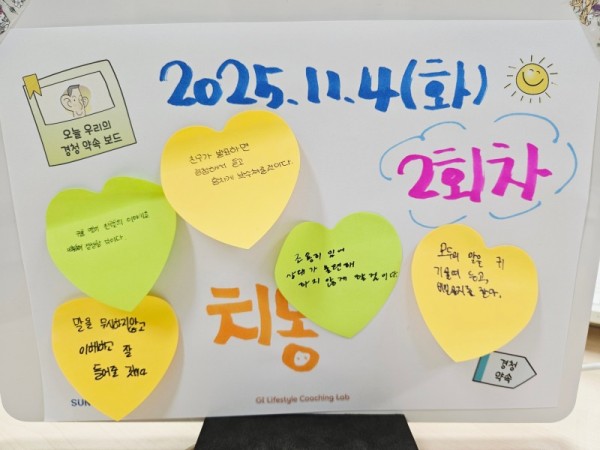 2025.11.4(화)
오늘 우리의
경청 약속 보드
2회차
친구가 발표하면
경청하여 듣고
힘차게 박수쳐줄것이다.
조용히 있어
상대가 불편해
하지 않게 할 것이다
모두의 말을 귀
기울여 듣고,
말을 무시하지않고
이해하고 잘
들어줄 거에요
치농
경청
약속
SUN
GI Lifestyle Coaching Lab